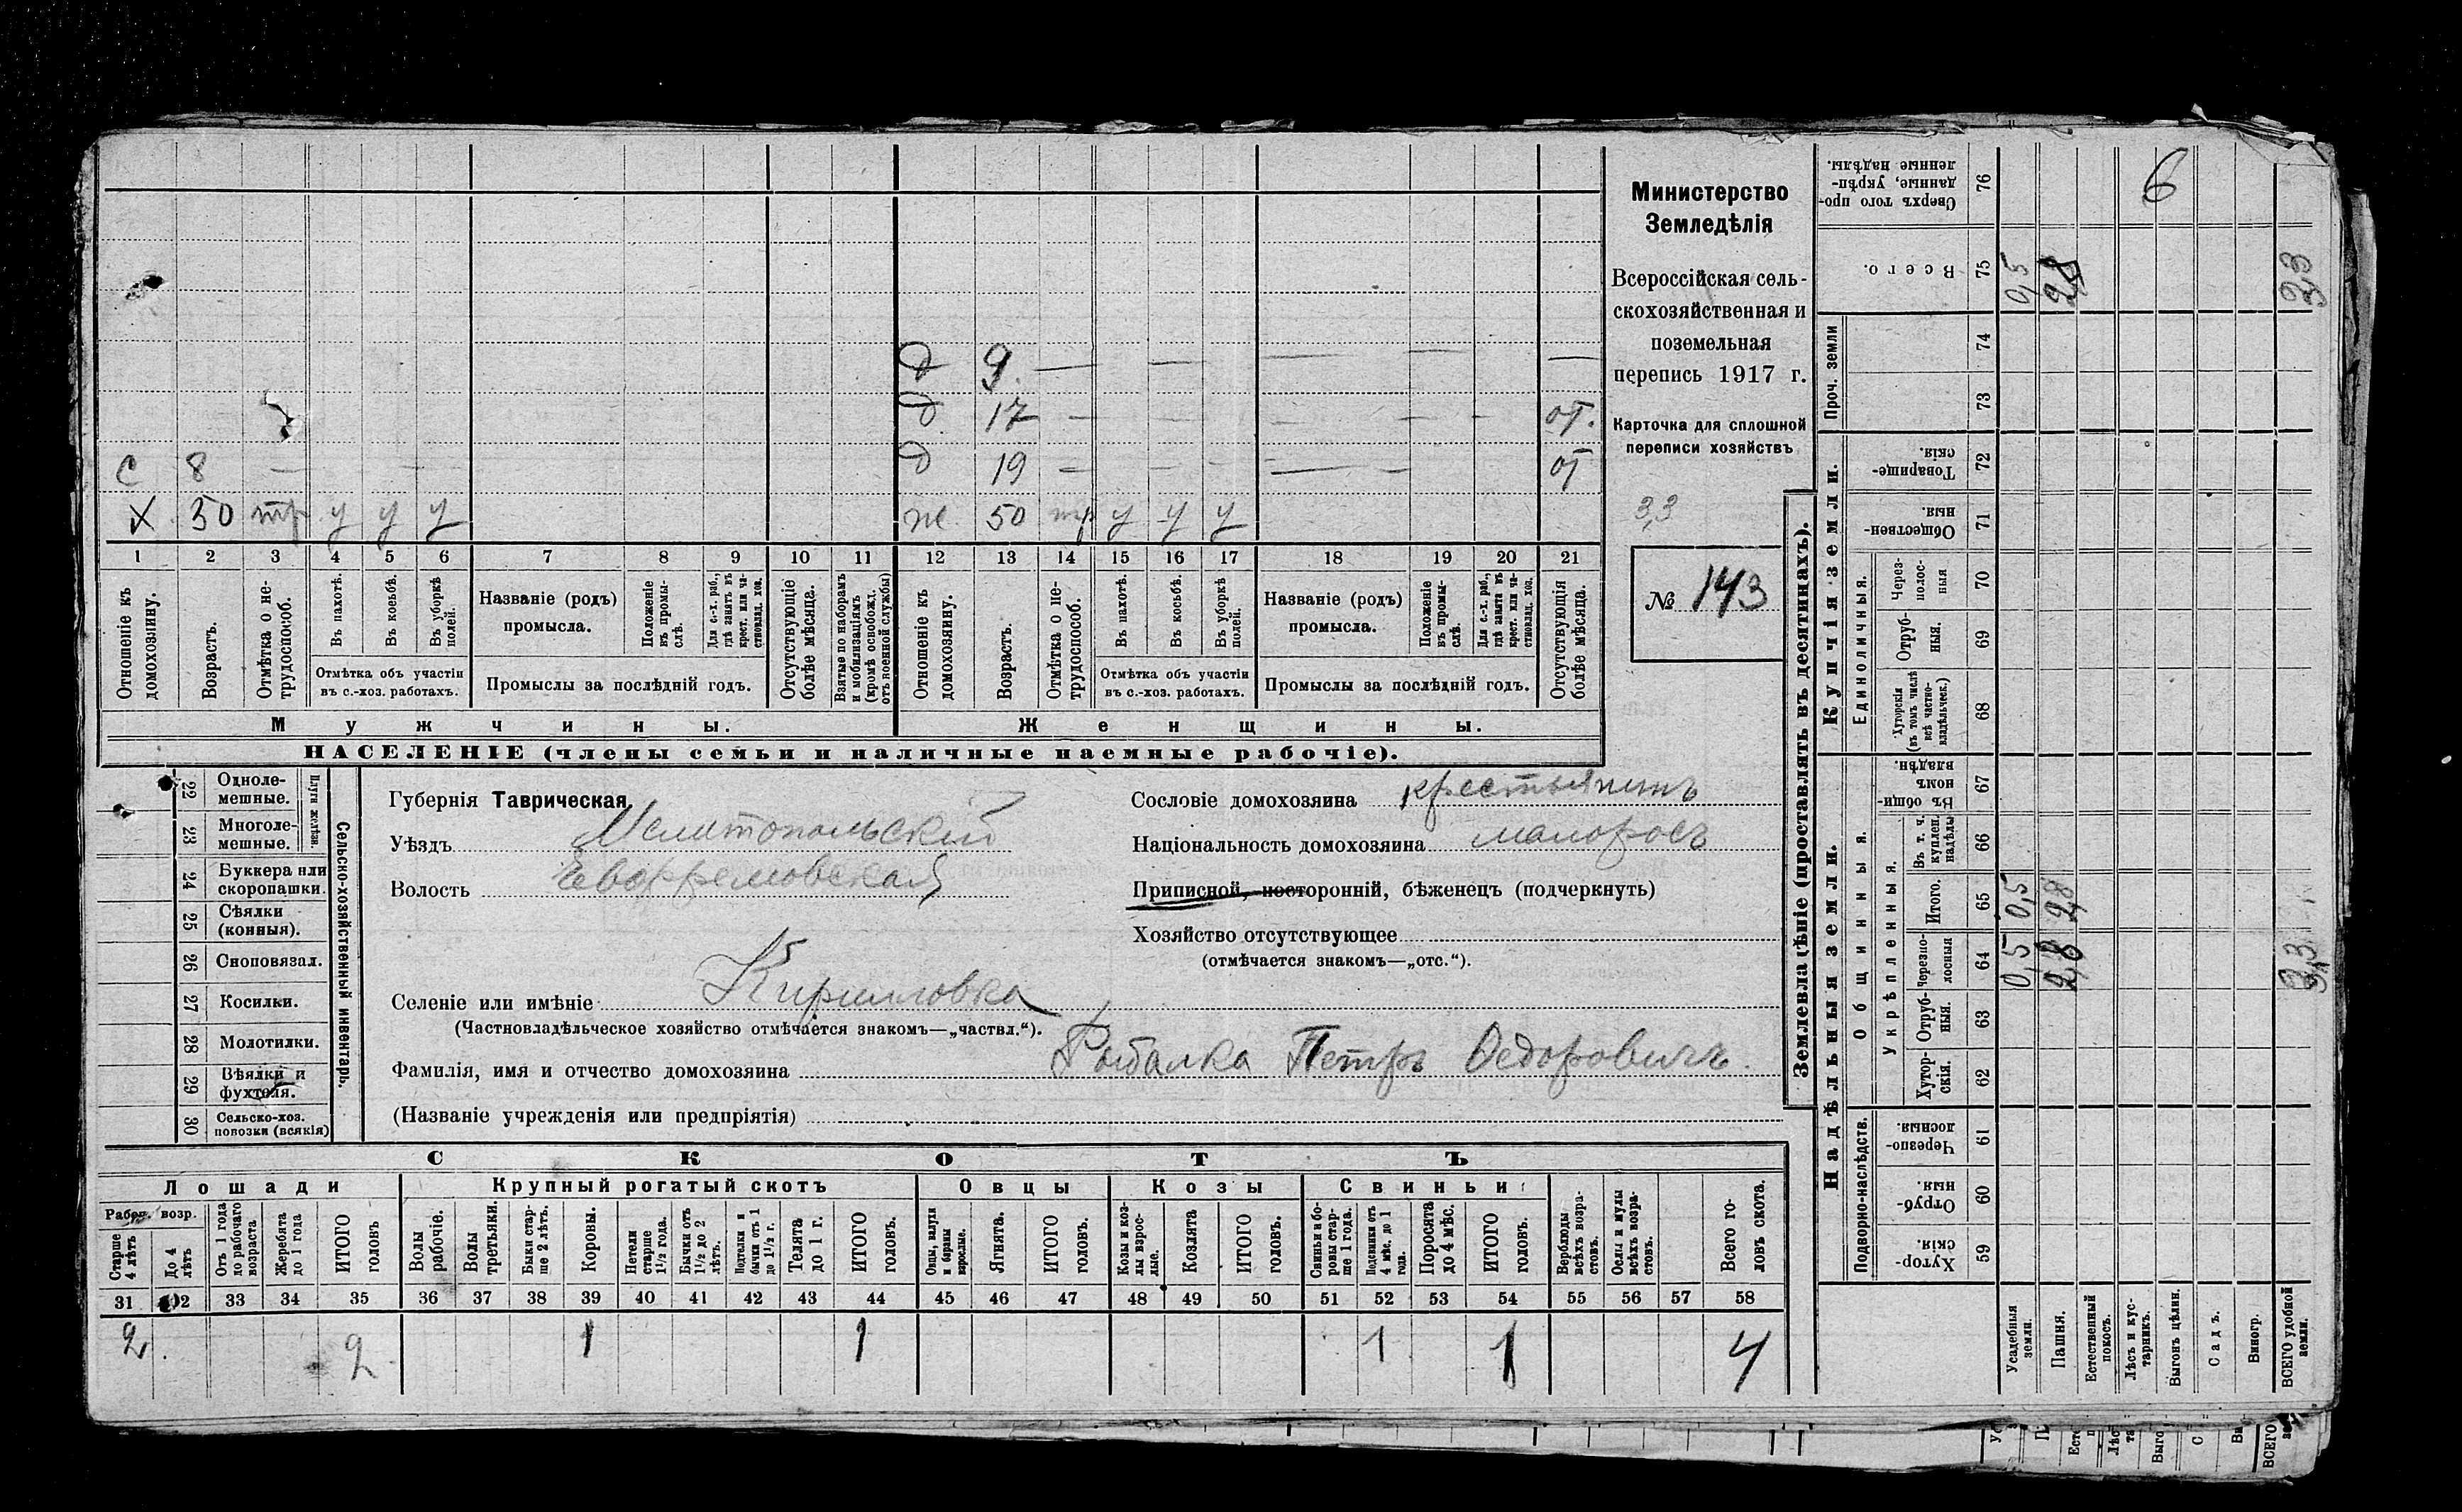 Министерство
Земледѣлія
Всероссійская сель-
скохозяйственная и
поземельная
перепись 1917 г.
Карточка для сплошной
переписи хозяйствъ
3,3
№ 143
д 9 — — — — —
д 17 — — — — — — от.
д 19 — — — — — — от
с 8 — —
х 50 тр у у у
ж 50 тр у у у
1 2 3 4 5 6 7 8 9 10 11 12 13 14 15 16 17 18 19 20 21
Отношеніе къ домохозяину.
Возрастъ.
Отмѣтка о не-трудоспособ.
Въ пахотѣ.
Въ косьбѣ.
Въ уборкѣ полей.
Отмѣтка объ участіи
въ с.-хоз. работахъ.
Названіе (родъ)
промысла.
Положеніе въ промы-слѣ.
Для с.-х. раб., гдѣ занятъ въ крест. или ча-ствовлад. хоз.
Промыслы за послѣдній годъ.
Отсутствующіе болѣе мѣсяца.
Взятые по наборамъ и мобилизаціямъ (кромѣ освобожд. отъ военной службы)
Отношеніе къ домохозяину.
Возрастъ.
Отмѣтка о не-трудоспособ.
Въ пахотѣ.
Въ косьбѣ.
Въ уборкѣ полей.
Отмѣтка объ участіи
въ с.-хоз. работахъ.
Названіе (родъ)
промысла.
Положеніе въ промы-слѣ.
Для с.-х. раб., гдѣ занята въ крест. или ча-ствовлад. хоз.
Промыслы за послѣдній годъ.
Отсутствующія болѣе мѣсяца.
Мужчины.
Женщины.
НАСЕЛЕНІЕ (члены семьи и наличные наемные рабочіе).
22 Одноле-мешные.
23 Многоле-мешные.
Плуги желѣзн.
24 Буккера или скоропашки.
25 Сѣялки (конныя).
26 Сноповязал.
27 Косилки.
28 Молотилки.
29 Вѣялки и фухтеля.
30 Сельско-хоз. повозки (всякія)
Сельско-хозяйственный инвентарь.
Губернія Таврическая
Уѣздъ Мелитопольскій
Волость Ефремовская
Селеніе или имѣніе Кирилловка
(Частновладѣльческое хозяйство отмѣчается знакомъ—„частвл.“).
Фамилія, имя и отчество домохозяина Рыбалка Петръ Ѳедоровичъ.
(Названіе учрежденія или предпріятія)
Сословіе домохозяина крестьянинъ
Національность домохозяина малоросъ
Приписной, посторонній, бѣженецъ (подчеркнуть)
Хозяйство отсутствующее
(отмѣчается знакомъ—„отс.“).
СКОТЪ
Лошади
Крупный рогатый скотъ
Овцы
Козы
Свиньи
Рабоч. возр.
Старше 4 лѣтъ
До 4 лѣтъ
Отъ 1 года до рабочаго возраста
Жеребята до 1 года
ИТОГО головъ
Волы рабочіе.
Волы третьяки.
Быки стар-ше 2 лѣтъ.
Коровы.
Нетели старше 1½ года.
Бычки отъ 1½ до 2 лѣтъ.
Подтелки и бычки отъ 1 до 1½ г.
Телята до 1 г.
ИТОГО головъ.
Овцы, валухи и бараны взрослые.
Ягнята.
ИТОГО головъ.
Козы и коз-лы взрос-лые.
Козлята
ИТОГО головъ.
Свиньи и бо-ровы стар-ше 1 года.
Подсвинки отъ 4 мѣс. до 1 года.
Поросята до 4 мѣс.
ИТОГО головъ.
Верблюды всѣхъ возра-стовъ.
Ослы и мулы всѣхъ возра-стовъ.
Всего го-ловъ скота.
31 32 33 34 35 36 37 38 39 40 41 42 43 44 45 46 47 48 49 50 51 52 53 54 55 56 57 58
2 2 1 1 1 1 4
Землевладѣніе (проставлять въ десятинахъ).
Купчія земли.
Надѣльныя земли.
Проч. земли
Единоличныя.
Общинныя.
Укрѣпленныя.
Подворно-наслѣдств.
Сверхъ того про-данные, укрѣп-ленные надѣлы. 76 6
Всего. 75 0,5 2,8 3,3
74
73
Товарище-скія. 72
Обществен-ныя. 71
Черезполос-ныя 70
Отруб-ныя. 69
Хуторскія (въ томъ числѣ всѣ частно-владѣльческ.) 68
Въ общи-номъ владѣн. 67
Въ т. ч. куплен. надѣлы 66
Итого. 65 0,5 2,8
Черезпо-лосныя 64 0,5 2,8 3,3
Отруб-ныя. 63
Хутор-скія. 62
Черезпо-лосныя. 61
Отруб-ныя. 60
Хутор-скія. 59
Усадебныя земли.
Пашня.
Естественный покосъ.
Лѣсъ и кус-тарникъ.
Выгонъ цѣлин.
Садъ.
Виногр.
ВСЕГО удобной земли.